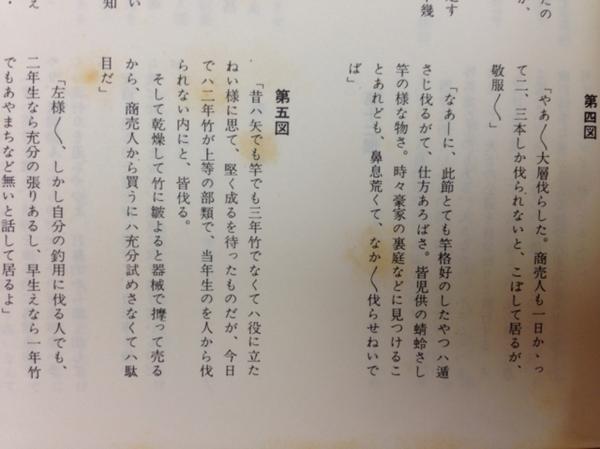 たの
が、
返す
幾
第四図
「やあ〳〵大層伐らした。商売人も一日かゝっ
て二、三本しか伐られないと、こぼして居るが、
敬服〳〵」
「なあーに、此節とても竿格好のしたやつハ遁
さじ伐るがて、仕方あろばさ。皆児供の蜻蛉さし
竿の様な物さ。時々豪家の裏庭などに見つけるこ
とあれども、鼻息荒くて、なか〳〵伐らせねいで
ば」
第五図
「昔ハ矢でも竿でも三年竹でなくてハ役に立た
ねい様に思て、堅く成るを待ったものだが、今日
でハ二年竹が上等の部類で、当年生のを人から伐
られない内にと、皆伐る。
そして乾燥して竹に皺よると器械で摩って売る
から、商売人から買うにハ充分試めさなくてハ駄
目だ」
「左様〳〵、しかし自分の釣用に伐る人でも、
二年生なら充分の張りあるし、早生えなら一年竹
でもあやまちなど無いと話して居るよ」
い
知
え